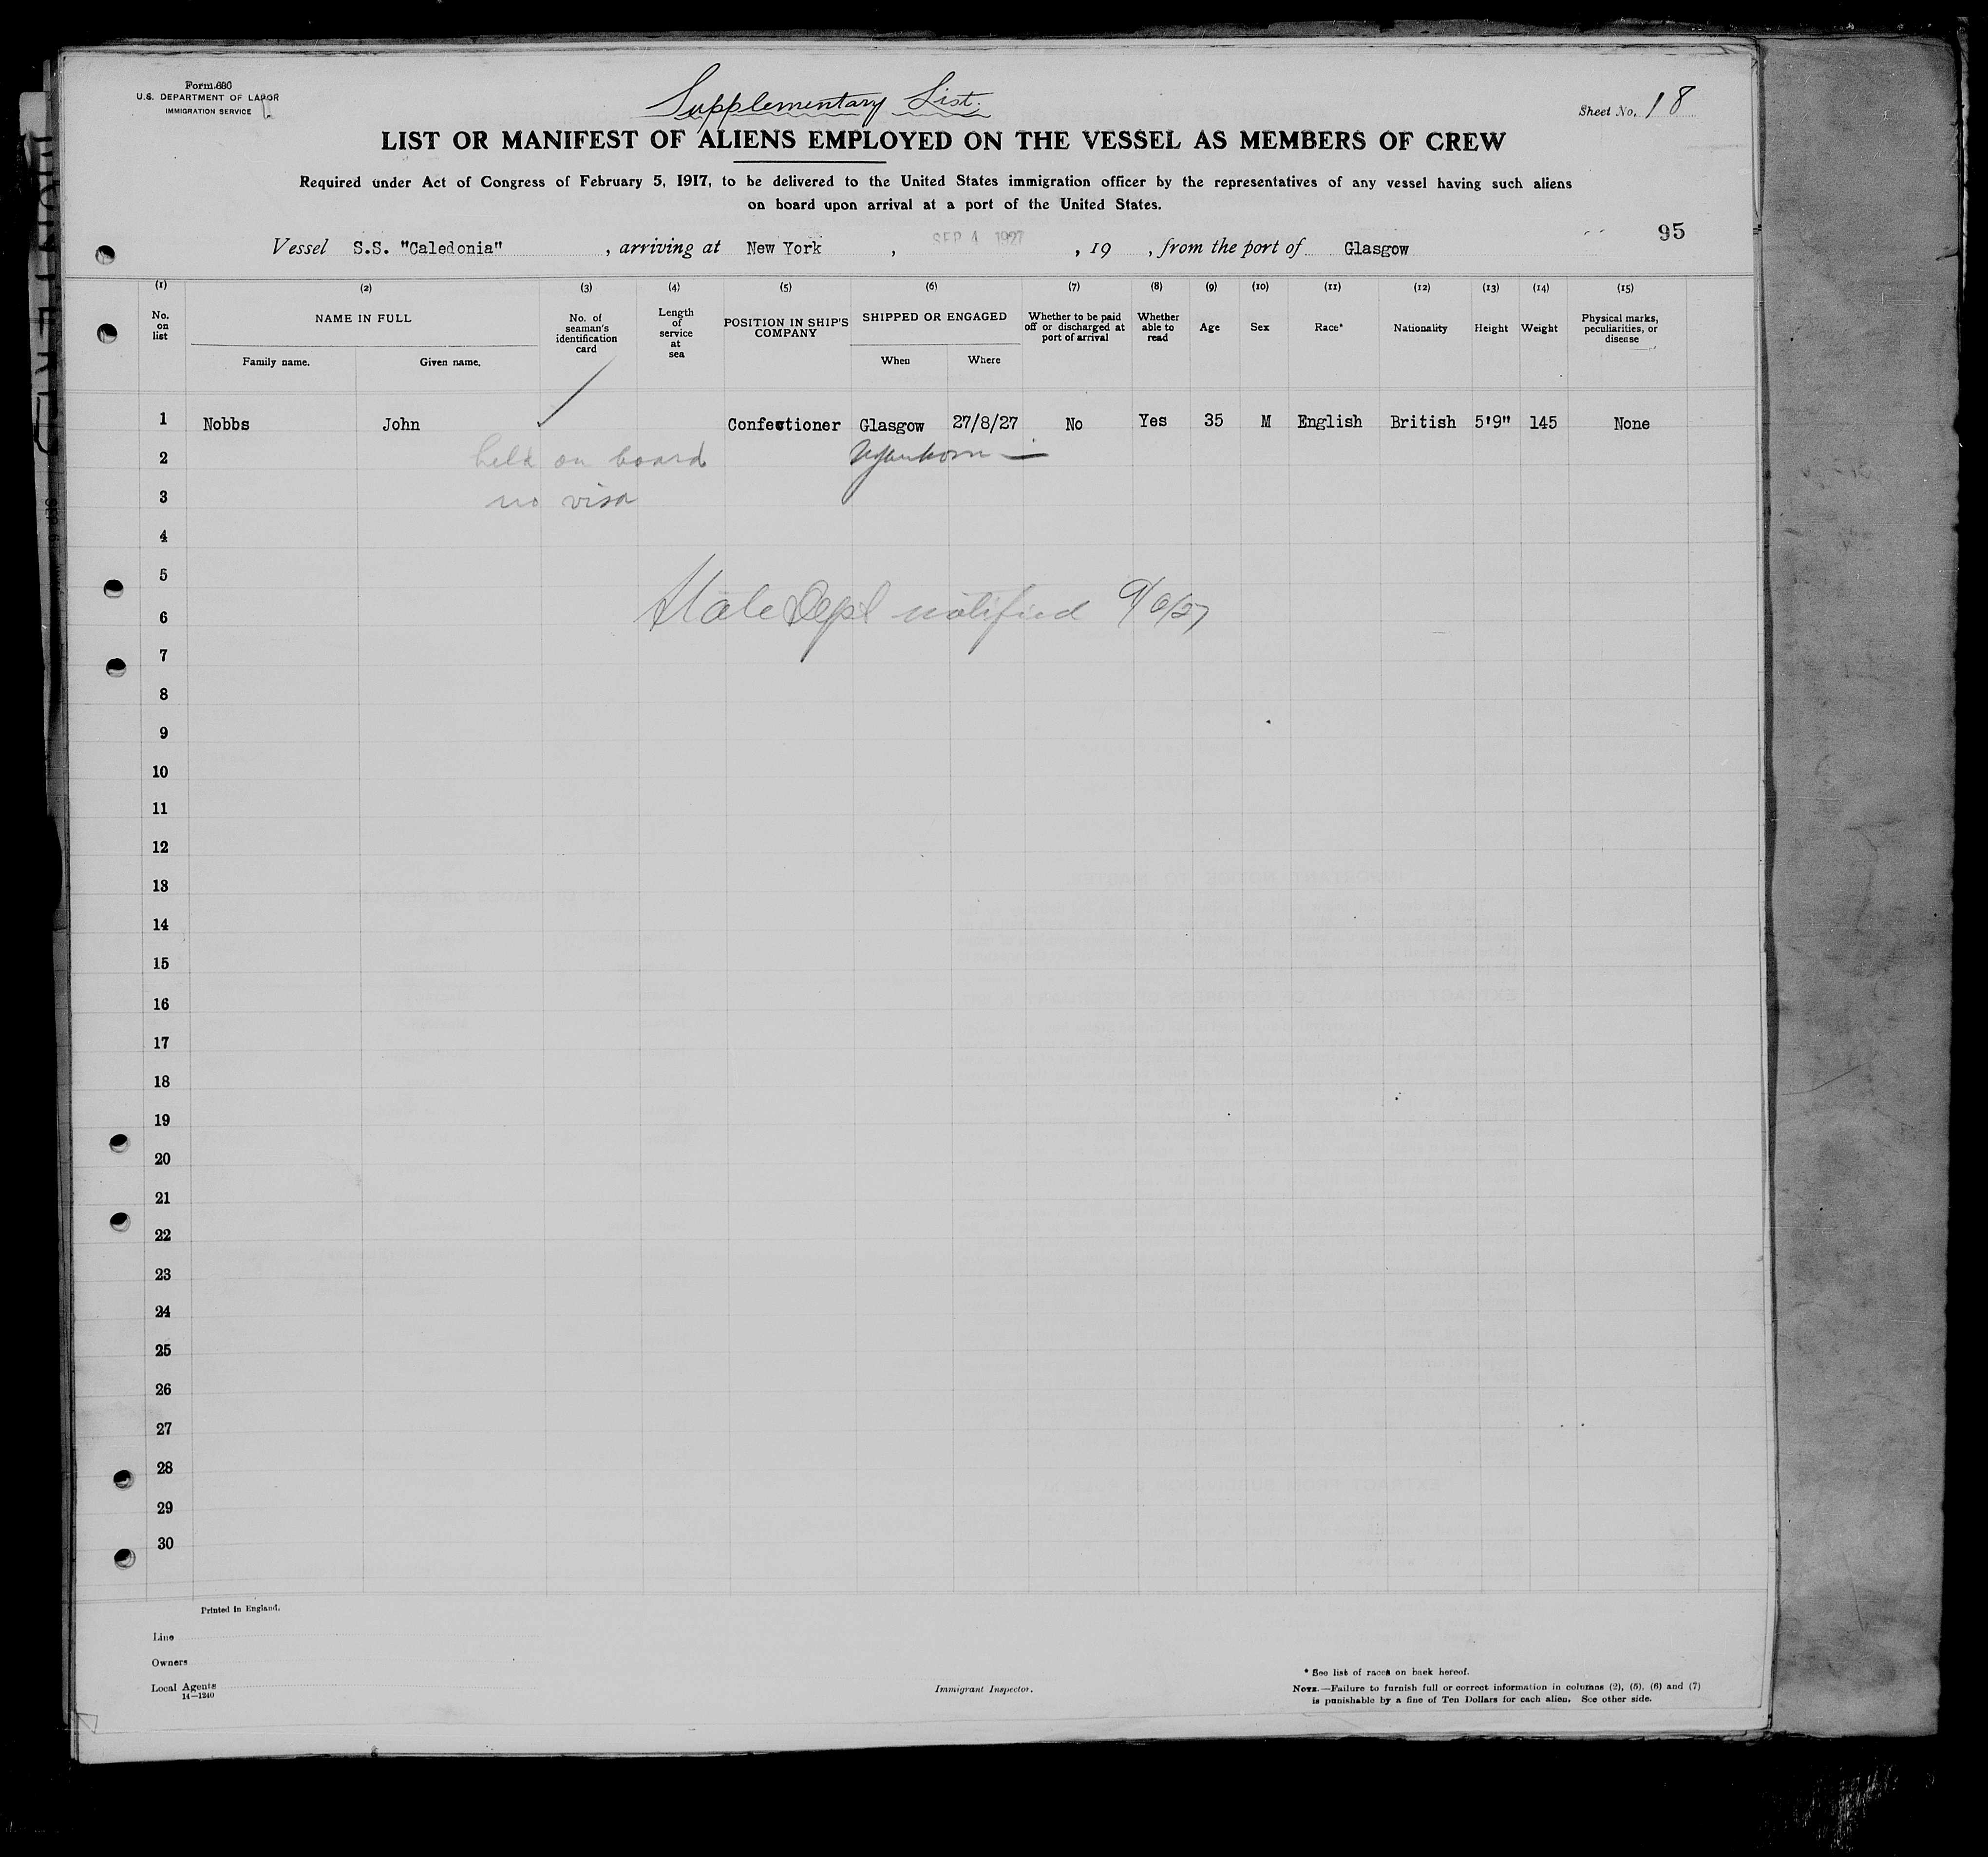 Form 680
U.S. DEPARTMENT OF LABOR
IMMIGRATION SERVICE
Supplementary List.
Sheet No. 18
LIST OR MANIFEST OF ALIENS EMPLOYED ON THE VESSEL AS MEMBERS OF CREW
Required under Act of Congress of February 5, 1917, to be delivered to the United States immigration officer by the representatives of any vessel having such aliens
on board upon arrival at a port of the United States.
95
Vessel S.S. "Caledonia", arriving at New York, SEP 4 1927, 19 , from the port of Glasgow
(1) (2) (3) (4) (5) (6) (7) (8) (9) (10) (11) (12) (13) (14) (15)
No. on list
NAME IN FULL
Family name. Given name.
No. of seaman's identification card
Length of service at sea
POSITION IN SHIP'S COMPANY
SHIPPED OR ENGAGED
When Where
Whether to be paid off or discharged at port of arrival
Whether able to read
Age
Sex
Race*
Nationality
Height
Weight
Physical marks, peculiarities, or disease
1 Nobbs John Confectioner Glasgow 27/8/27 No Yes 35 M English British 5'9" 145 None
2 held on board
3 no visa
4
5
6 State Dept notified 9/6/27
7
8
9
10
11
12
13
14
15
16
17
18
19
20
21
22
23
24
25
26
27
28
29
30
Printed in England.
Line
Owners
Local Agents
14—1240
Immigrant Inspector.
* See list of races on back hereof.
NOTE.—Failure to furnish full or correct information in columns (2), (5), (6) and (7)
is punishable by a fine of Ten Dollars for each alien. See other side.